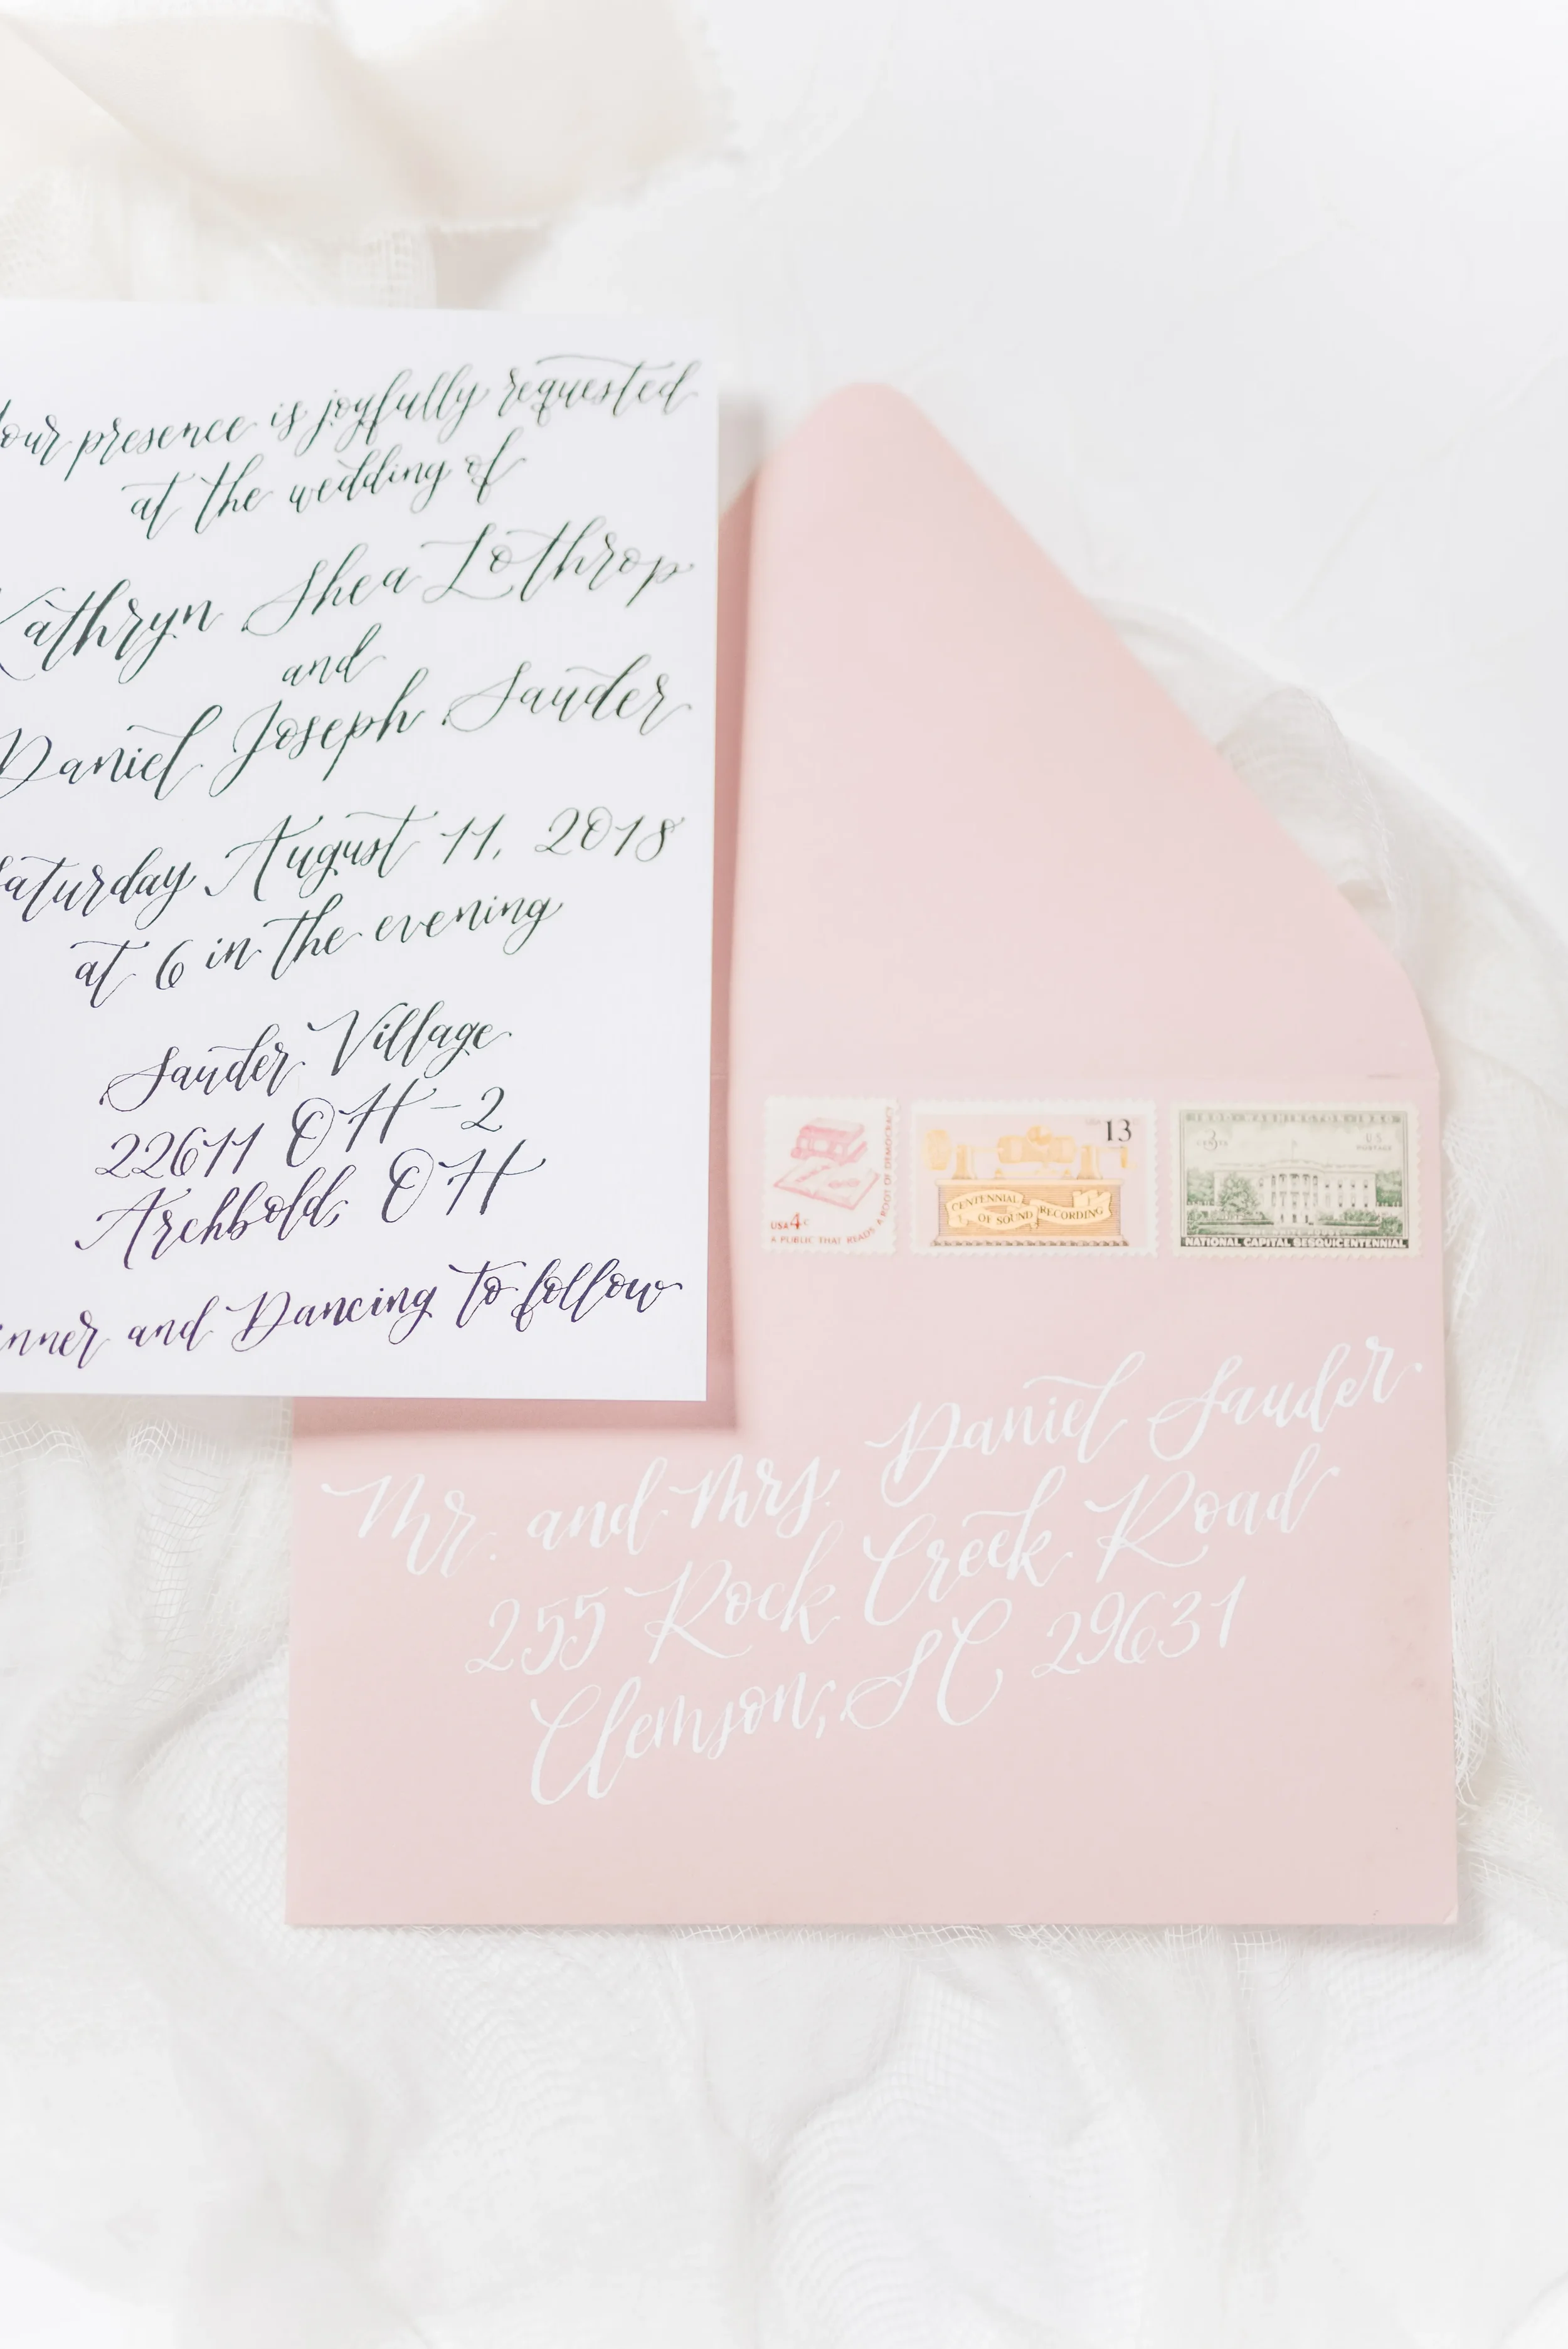 our presence is joyfully requested
at the wedding of
Kathryn Shea Lothrop
and
Daniel Joseph Sauder
Saturday August 11, 2018
at 6 in the evening
Sauder Village
22611 OH-2
Archbold, OH
nner and Dancing to follow
USA 4c
A PUBLIC THAT READS A ROOT OF DEMOCRACY
USA 13
CENTENNIAL
OF SOUND RECORDING
1800 WASHINGTON 1950
3 CENTS
U.S.
POSTAGE
NATIONAL CAPITAL SESQUICENTENNIAL
Mr. and Mrs. Daniel Sauder
255 Rock Creek Road
Clemson, SC 29631